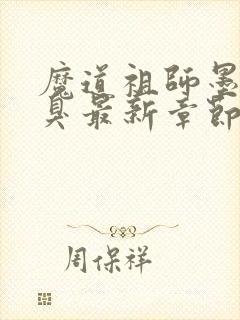 魔道祖師墨
臭最新章節
周保祥